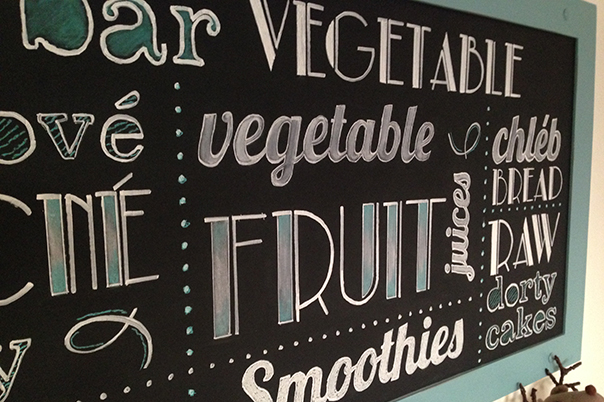 bar VEGETABLE
ové
vegetable
chléb
BREAD
CINÉ
FRUIT
juices
RAW
dorty
cakes
y
Smoothies